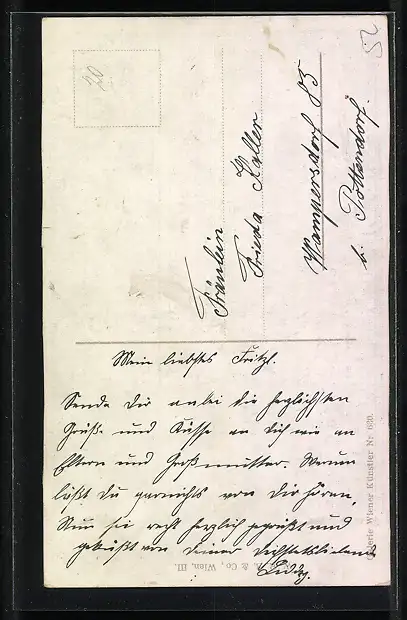 Fräulein
Frieda Koller
Wampersdorf 85
b. Pottendorf.
52
20
Mein liebstes Fritzl.
Sende Dir anbei die herzlichsten
Grüße und Küsse an Dich wie an
Eltern und Großmutter. Warum
läßt Du garnichts von Dir hören,
Nun sei recht herzlich gegrüßt und
geküßt von Deiner Dich
& Co., Wien, III.
Galerie Wiener Künstler Nr. 630.